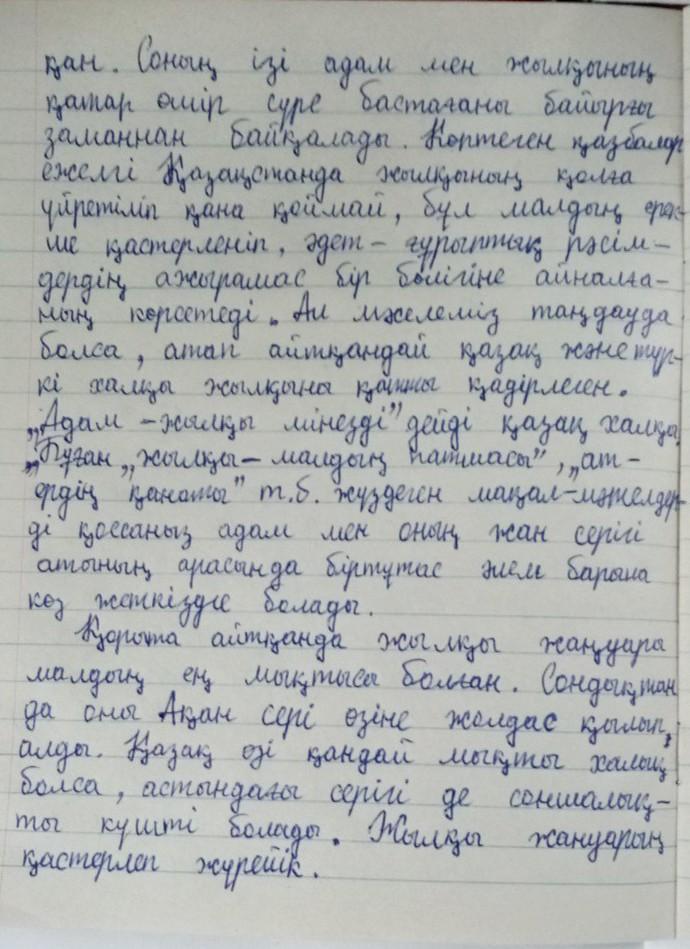 қан. Соның ізі адам мен жылқының
қатар өмір сүре бастағаны байырғы
заманнан байқалады. Көптеген қазбалар
ежелгі Қазақстанда жылқының қолға
үйретіліп қана қоймай, бұл малдың ерек-
ше қастерленіп, әдет-ғұрыптық рәсім-
дердің ажырамас бір бөлігіне айналға-
ның көрсетеді. Ал мәселеміз таңдауда
болса, атап айтқандай қазақ және түр-
кі халқы жылқыны қатты қадірлеген.
„Адам-жылқы мінезді" дейді қазақ халқы.
„Бұған „жылқы-малдың патшасы", „ат-
ердің қанаты" т.б. жүздеген мақал-мәтелдер-
ді қоссаңыз адам мен оның жан серігі
атының арасында біртұтас әлем барына
көз жеткіздіге болады.
Қорыта айтқанда жылқы жаңуары
малдың ең мықтысы болған. Сондықтан
да оны Ақан сері өзіне жолдас қылып,
алды. Қазақ өзі қандай мықты халық
болса, астындағы серігі де соншалық-
ты күшті болады. Жылқы жануарың
қастерлеп жүрейік.